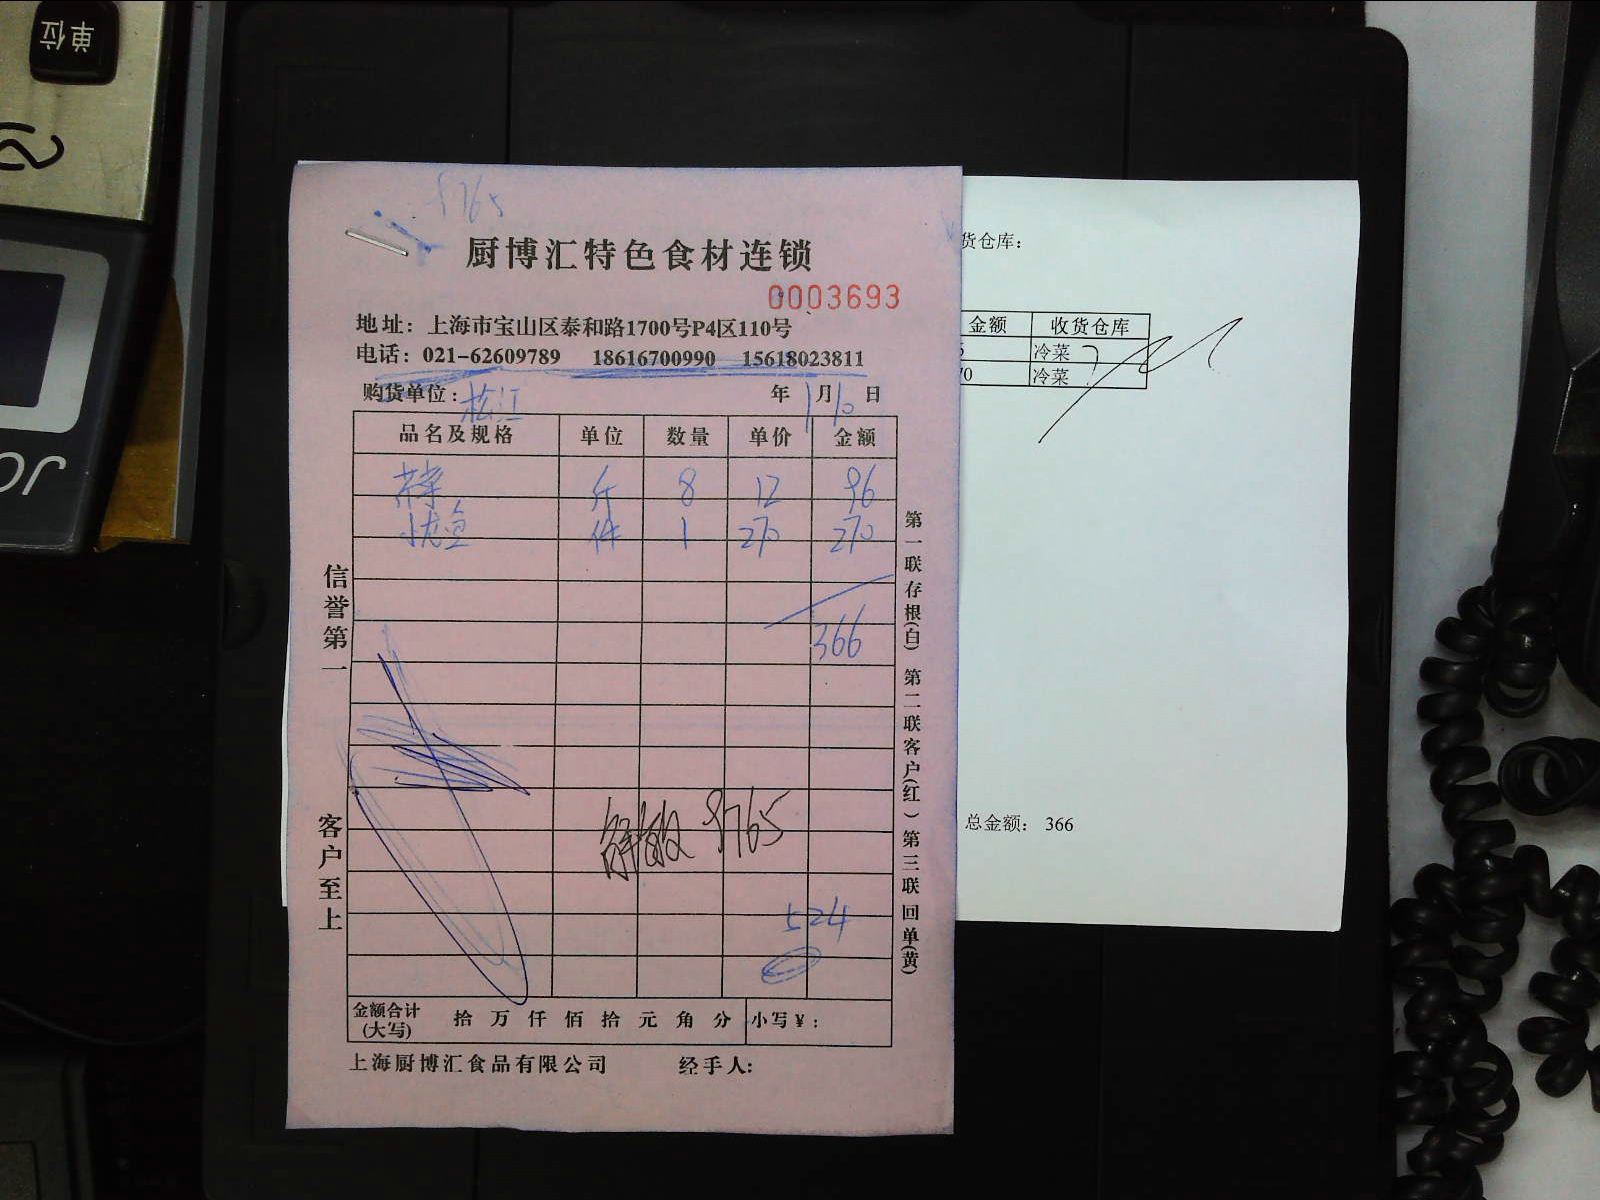 单位
5765
厨博汇特色食材连锁
0003693
地址：上海市宝山区泰和路1700号P4区110号
电话：021-62609789 18616700990 15618023811
购货单位：松江 年 1 月 10 日
品名及规格 单位 数量 单价 金额
斤 8 12 96
件 1 270 270
366
9765
524
金额合计(大写) 拾 万 仟 佰 拾 元 角 分 小写￥：
上海厨博汇食品有限公司 经手人:
信誉第一
客户至上
第一联存根(白) 第二联客户(红) 第三联回单(黄)
货仓库：
金额 收货仓库
冷菜
70 冷菜
总金额： 366